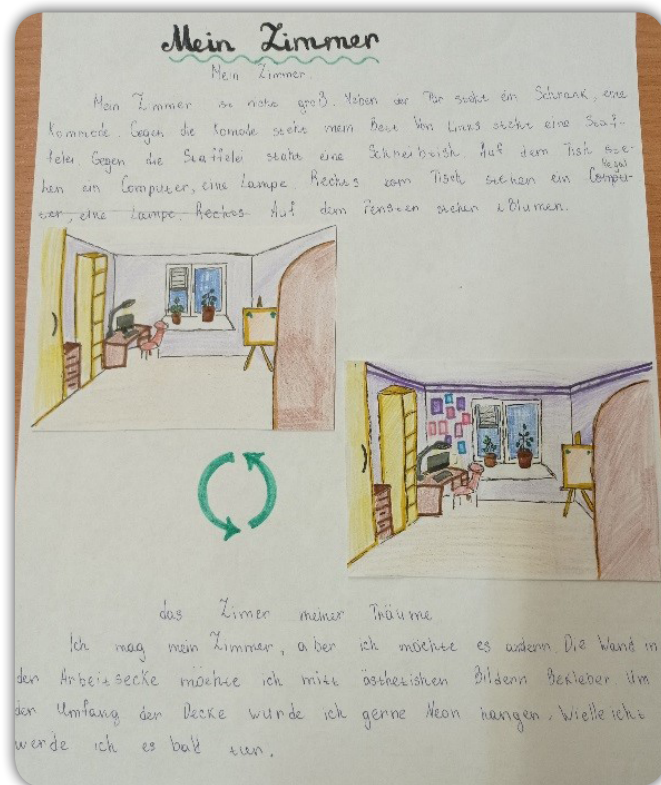 Mein Zimmer
Mein Zimmer.
Mein Zimmer ist nicht groß. Neben der Tür steht ein Schrank, eine
Kommode. Gegen die Komode steht mein Bett Von Links steht eine Staf-
felei. Gegen die Staffelei steht eine Schneibtish. Auf dem Tish ste-
hen ein Computer, eine Lampe. Rechts vom Tisch stehen ein Regal Compu-
ter, eine Lampe. Rechts Auf dem Fensten stehen 2 Blumen.
das Zimer meiner Träume
Ich mag mein Zimmer, aber ich möchte es andern. Die Wand in
der Arbeitsecke möchte ich mitt ästhetishen Bildern Bekleber. Um
den Umfang der Decke wurde ich gerne Neon hangen. Wielleicht
werde ich es bald tun.